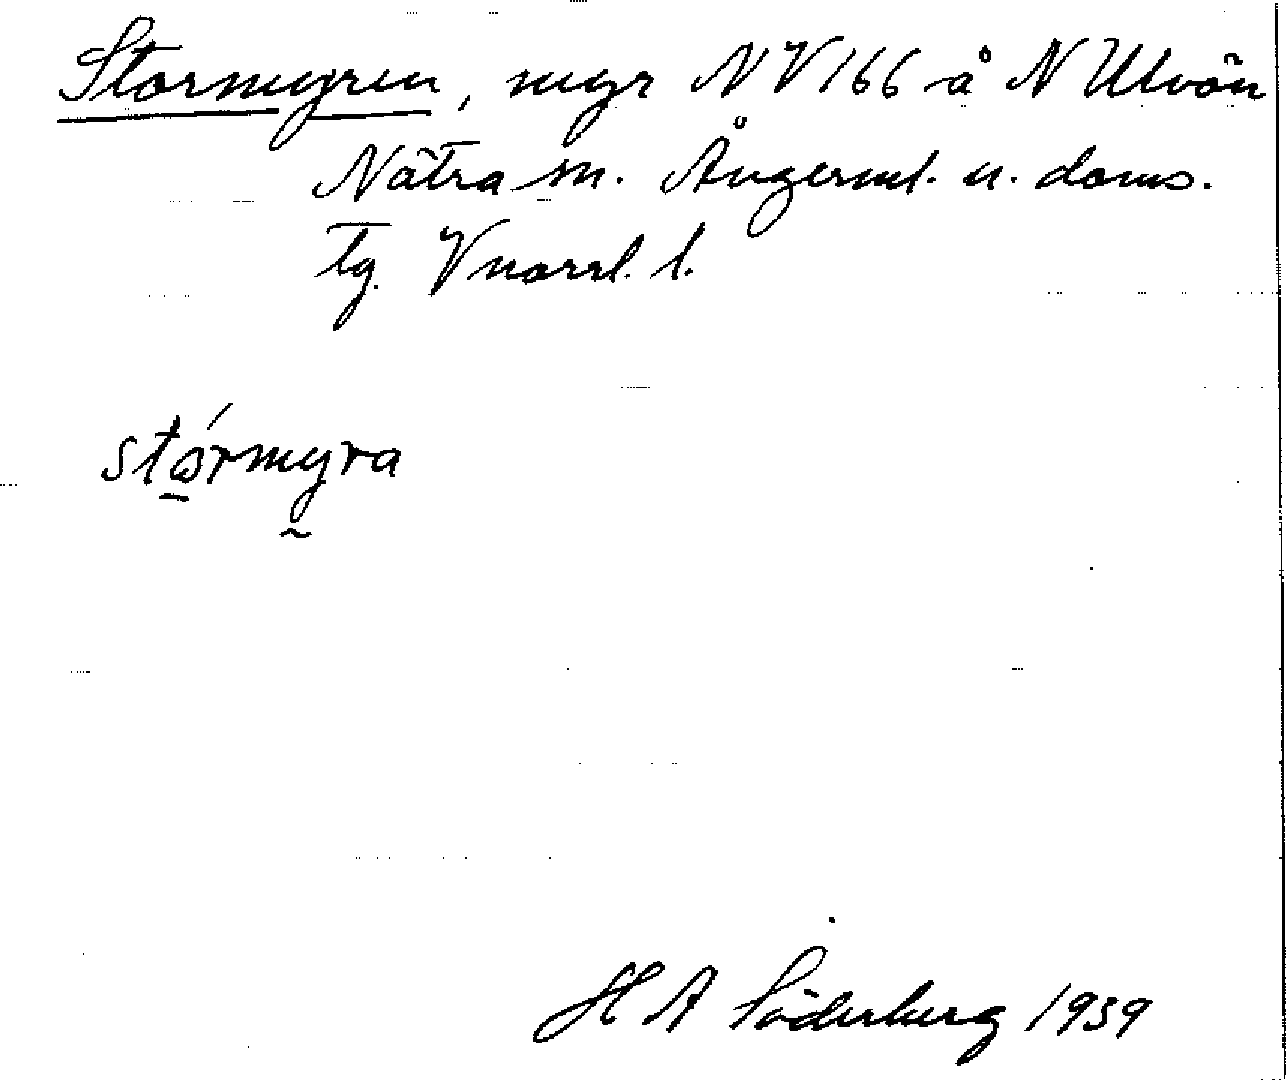 Stormyren, myr NV 166 å N Ulvön
Nätra sn. Ångerml. n. doms.
tg. Vnorrl. l.
stórmyra
H A Söderberg 1959